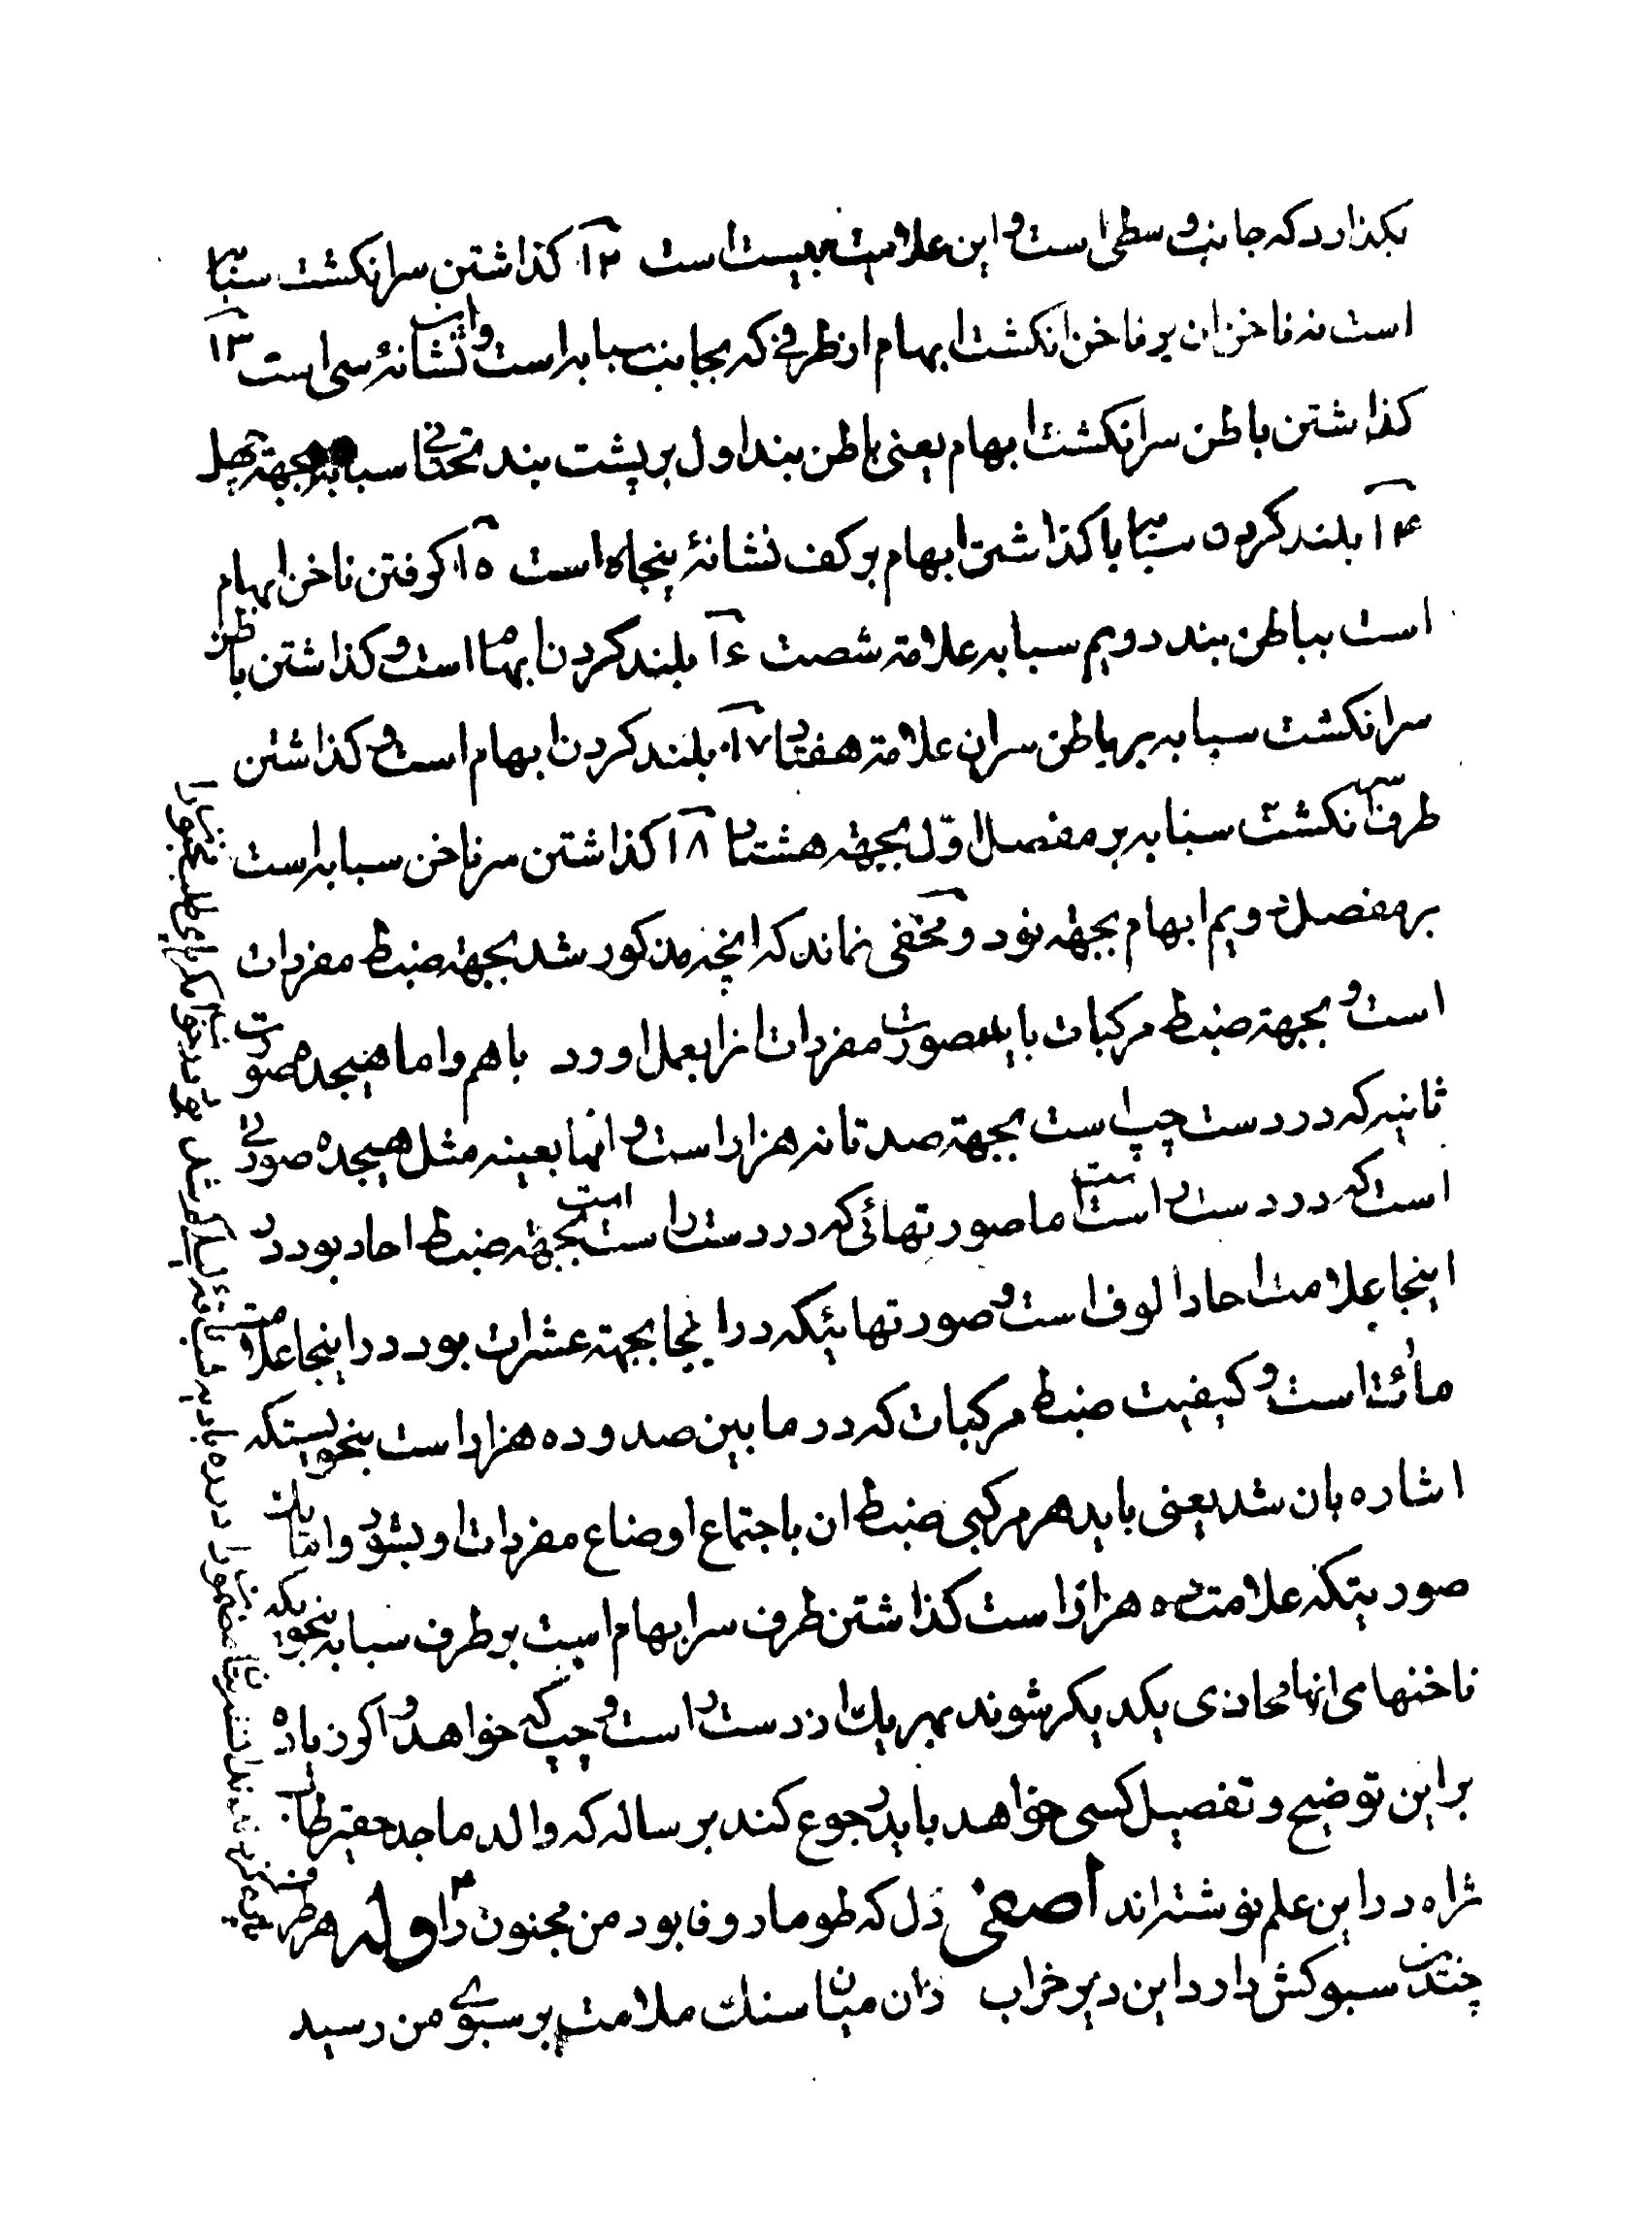 بکذارد که جانب وسطی است و این علامت بیست است ۱۲ کذاشتن سرانکشت سبابه
است نه ناخن ان بر ناخن انکشت ابهام از طرفی که بجانب سبابه است و این نشانهٔ سی است ۱۳
کذاشتن باطن سرانکشت ابهام یعنی باطن بند اول بر پشت بند تحتانی سبابه بجهة چهل
۱۴ بلند کردن سبابه با کذاشتن ابهام بر کف نشانهٔ پنجاه است ۱۵ کرفتن ناخن ابهام
است بباطن بند دویم سبابه علامة شصت ۱۶ بلند کردن ابهام است و کذاشتن باطن
سرانکشت سبابه بر باطن سر ان علامة هفتاد ۱۷ بلند کردن ابهام است و کذاشتن
طرف سر انکشت سبابه بر مفصل اوّل بجهة هشتاد ۱۸ کذاشتن سر ناخن سبابه است
بر مفصل دویم ابهام بجهة نود و مخفی نماند که انچه مذکور شد بجهة ضبط مفردات
است و بجهة ضبط مرکبات باید صورت مفردات انرا بعمل اورد باهم و اما هیجده صورت
ثانیه که در دست چپ است بجهة صد تا نه هزار است و انها بعینه مثل هیجده صورتی
است که در دست راست است اما صورتهائی که در دست راست است بجهة ضبط احاد بود در
اینجا علامت احاد الوف است و صورتهائیکه در اینجا بجهة عشرات بود در اینجا علامت
مائت است و کیفیت ضبط مرکبات که در مابین صد و ده هزار است بنحویستکه
اشاره بان شد یعنی باید هر مرکبی ضبط ان باجتماع اوضاع مفردات او بشود و اما یک
صورتیکه علامت ده هزار است کذاشتن طرف سر ابهام است بر طرف سبابه بنحویکه
ناخنهای انها محاذی یکدیکر شوند بهر یک از دست راست و چپ که خواهد و اکر زیاده
بر این توضیح و تفصیل کسی خواهد باید رجوع کند برساله که والد ماجد حقیر طاب
ثراه در این علم نوشته اند اصفی دل که طومار وفا بود من مجنون را وله هر طرف
چندین سبوکش دارد این دیر خراب زان میان سنک ملامت بر سبوی من رسید